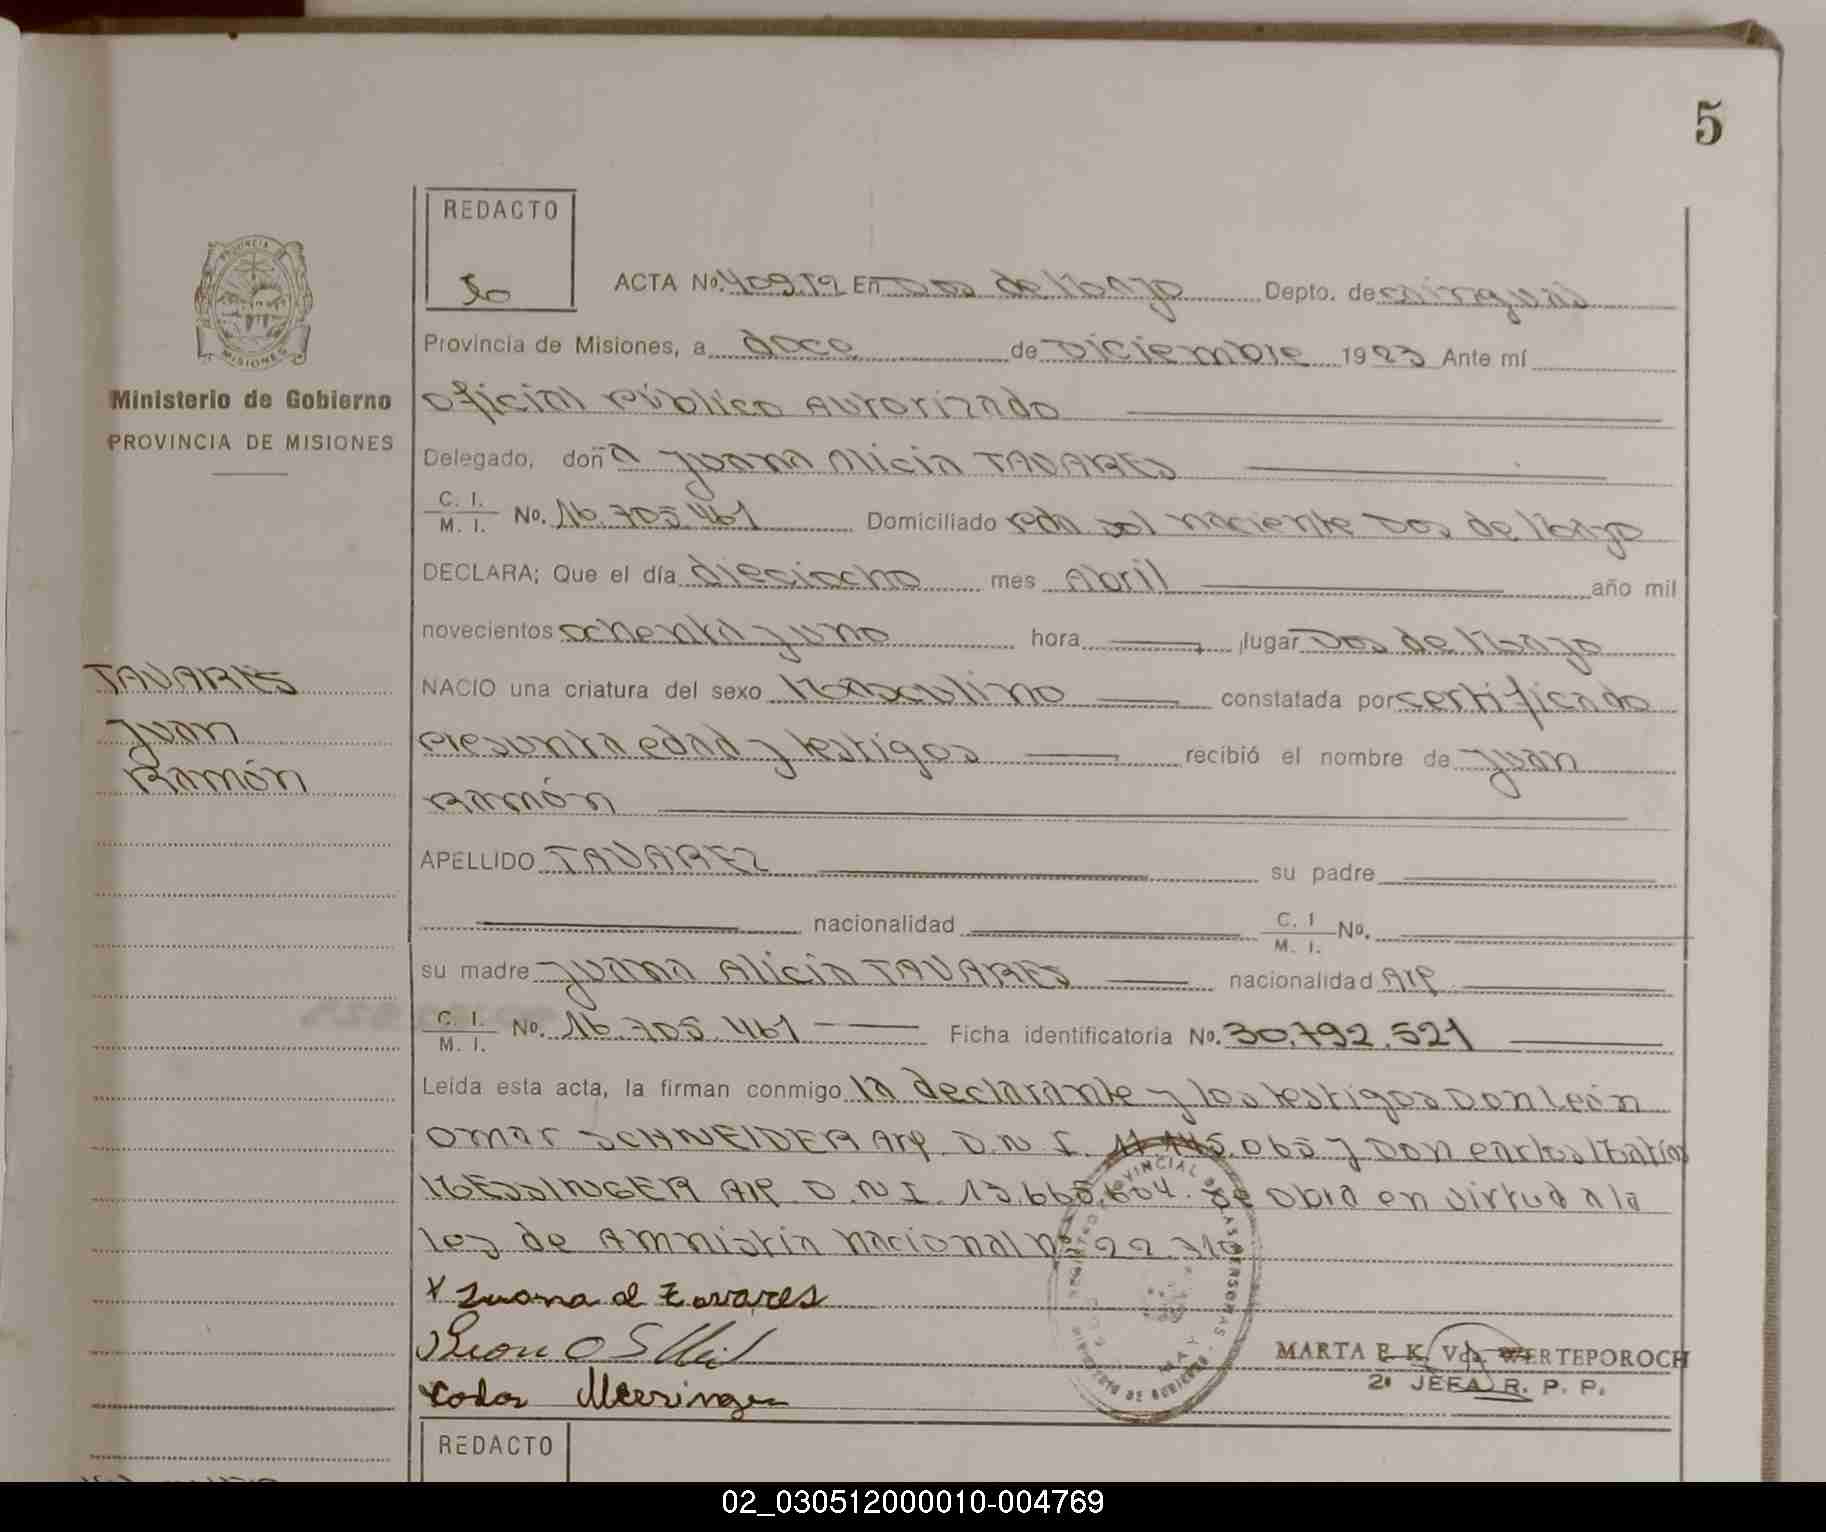 5
REDACTO
ACTA No. En Dos de Mayo Depto. de Cainguás
Provincia de Misiones, a doce de Diciembre 19 Ante mí
Oficial Público Autorizado
Delegado, doña Juana Alicia TAVARES
C. I. M. I. No. 16.705.461 Domiciliado sol naciente Dos de Mayo
DECLARA; Que el día dieciocho mes Abril año mil
novecientos ochenta y uno hora lugar Dos de Mayo
NACIO una criatura del sexo Masculino constatada por certificado
presunta edad y testigos recibió el nombre de Juan
Ramón
APELLIDO TAVAREZ su padre
nacionalidad C. I M. I. No.
su madre Juana Alicia TAVARES nacionalidad Arg
C. I. M. I. No. 16.705.461 Ficha identificatoria No. 30.792.521
Leída esta acta, la firman conmigo la declarante y los testigos Don León
Omar SCHNEIDER Arg. D.N.I. y Don Carlos Matías
MESSINGER Arg D.N.I. Se obra en virtud a la
ley de Amnistia nacional 22.
x Juana A Tavares
MARTA E. K. Vda. WERTEPOROCH
2ª JEFA R. P. P.
PROVINCIA
MISIONES
Ministerio de Gobierno
PROVINCIA DE MISIONES
TAVARES
Juan
Ramón
REDACTO
02_030512000010-004769